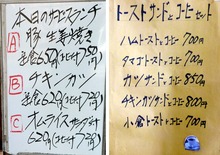 本日のサービスランチ
A 豚生姜焼き
定食650円(コーヒー付750円)
B チキンカツ
定食620円(コーヒー付720円)
C オムライスサラダ付
620円(コーヒー付720円)
トーストサンド&コーヒーセット
ハムトースト&コーヒー 700円
タマゴトースト&コーヒー 700円
カツサンド&コーヒー 850円
チキンカツサンド&コーヒー 800円
小倉トースト&コーヒー 700円